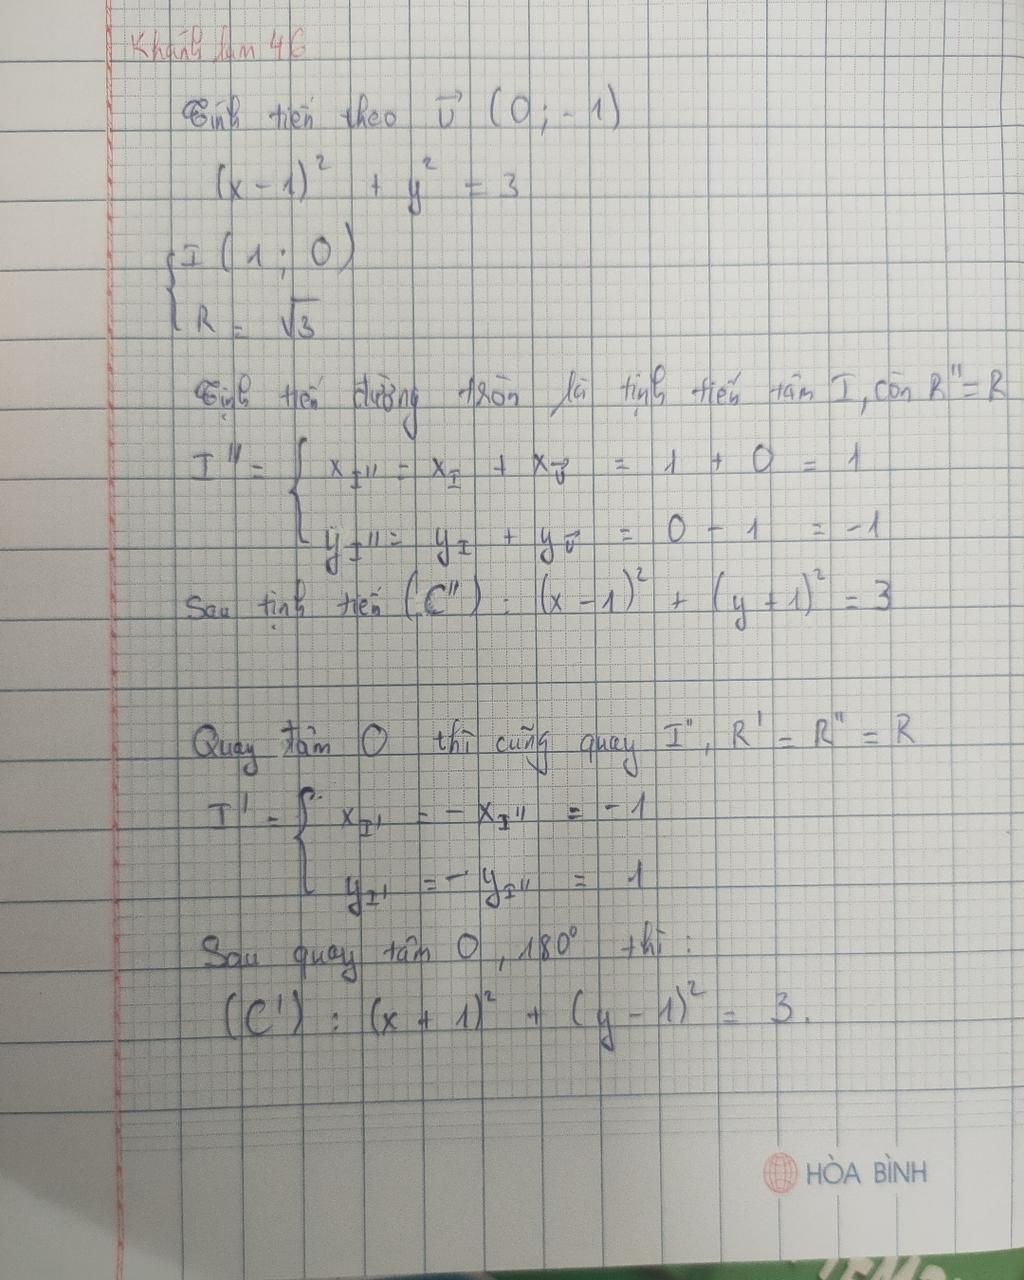 Khánh làm 46
Tịnh tiến theo v⃗ (0; -1)
(x - 1)² + y² = 3
{ I (1; 0)
R = √3
Tịnh tiến đường tròn là tịnh tiến tâm I, còn R" = R
I" = { x_I" = x_I + x_v⃗ = 1 + 0 = 1
y_I" = y_I + y_v⃗ = 0 - 1 = -1
Sau tịnh tiến (C") : (x - 1)² + (y + 1)² = 3
Quay tâm O thì cũng quay I", R' = R" = R
I' = { x_I' = - x_I" = - 1
y_I' = - y_I" = 1
Sau quay tâm O, 180° thì :
(C') : (x + 1)² + (y - 1)² = 3.
HÒA BÌNH